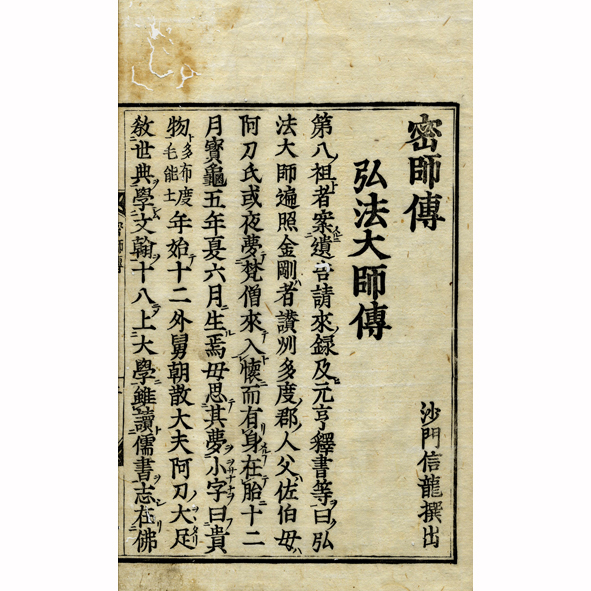 密師傳
弘法大師傳
沙門信龍撰出
第八祖者案遺告請來録及元亨釋書等曰弘
法大師遍照金剛者讃州多度郡人父佐伯母
阿刀氏或夜夢梵僧來入懷而有身在胎十二
月寶龜五年夏六月生焉母思其夢小字曰貴
物多布度毛能士年始十二外舅朝散大夫阿刀大足
敎世典學文翰十八上大學雖讀儒書志在佛